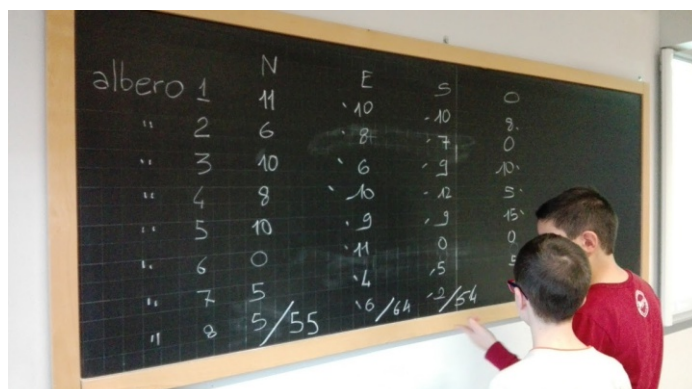 N E S O
albero 1 11 10 10 8
" 2 6 8 7 0
" 3 10 6 9 10
" 4 8 10 12 5
" 5 10 9 9 15
" 6 0 11 0 0
" 7 5 4 5 5
" 8 5/55 6/64 2/54